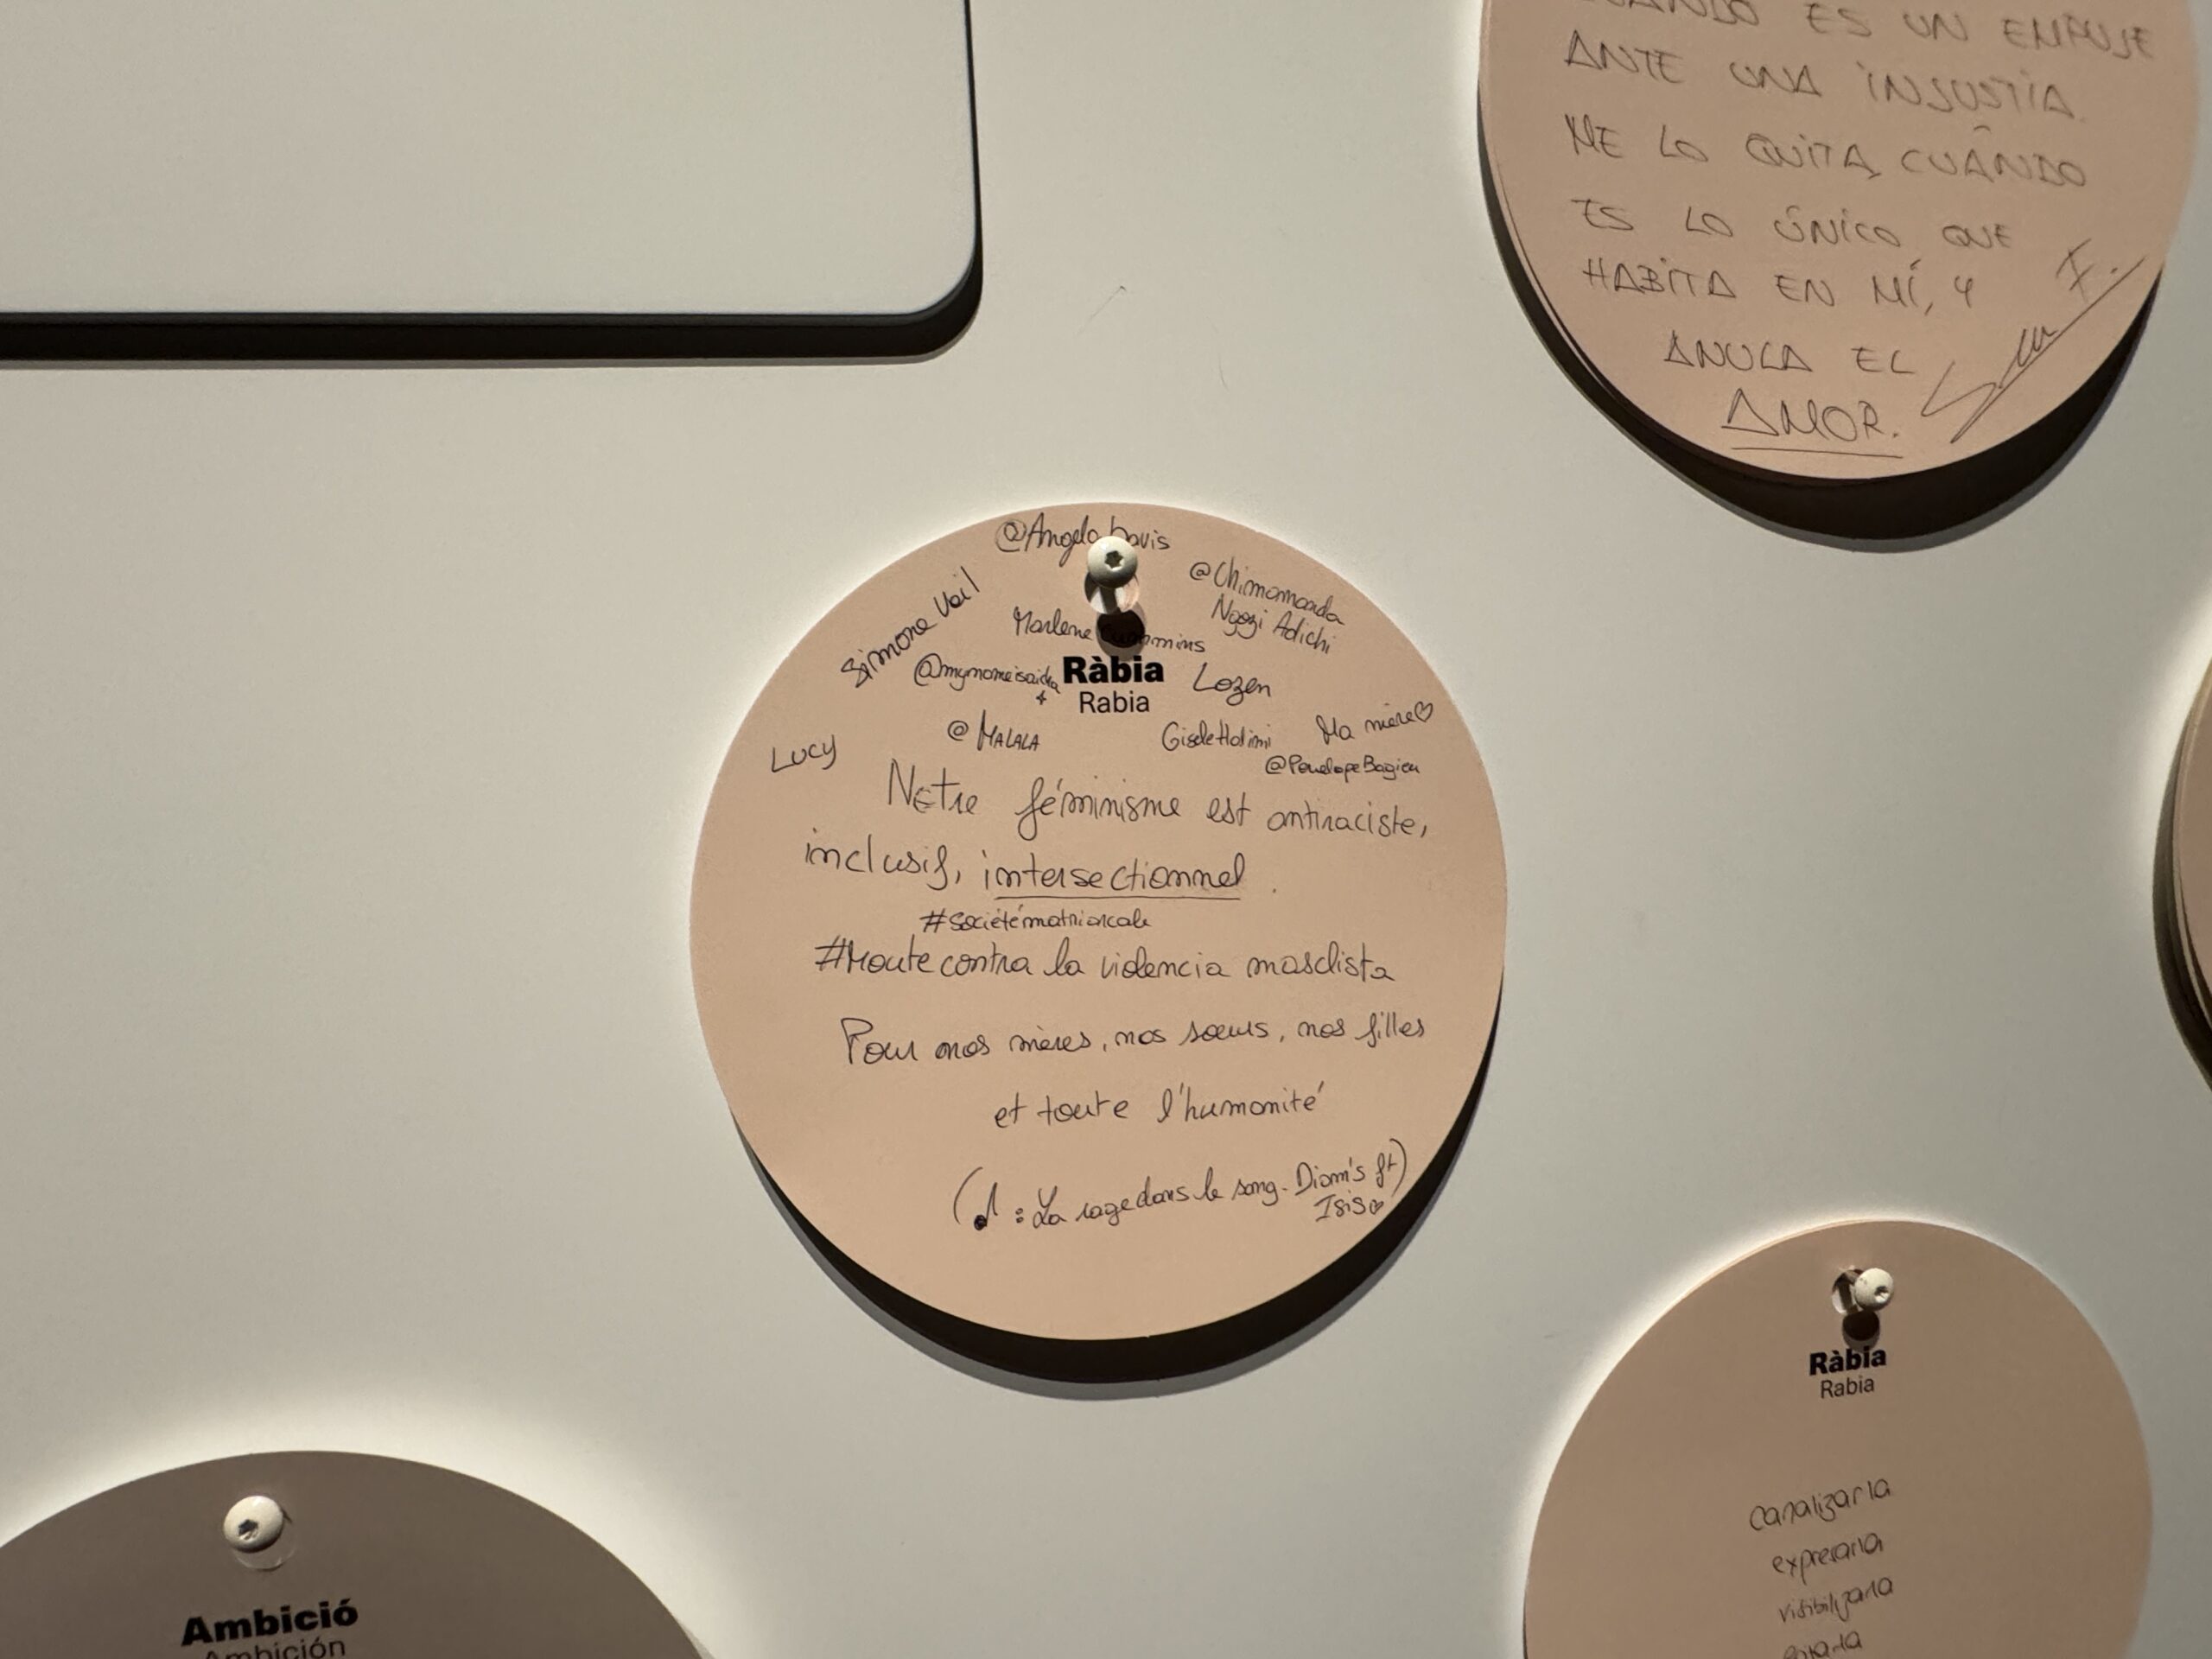 ES UN EMPUJE
ANTE UNA INJUSTIA.
ME LO QUITA, CUÁNDO
ES LO ÚNICO QUE
HABITA EN MÍ, Y
ANULA EL
AMOR.
F.
@Angela Davis
Simone Veil
@Chimamanda
Ngozi Adichi
Marlene Cummins
@mynameisaicha
Ràbia
Rabia
Lozen
Lucy
@MALALA
Gisèle Halimi
Ma mère♡
@PenelopeBagieu
Notre féminisme est antiraciste,
inclusif, intersectionnel.
#sociétématriarcale
contra la violencia masclista
Pour nos mères, nos sœurs, nos filles
et toute l'humanité
(♩: La rage dans le sang - Diam's ft)
Isis♡
Ràbia
Rabia
canalizarla
expresarla
visibilizarla
Ambició
Ambición